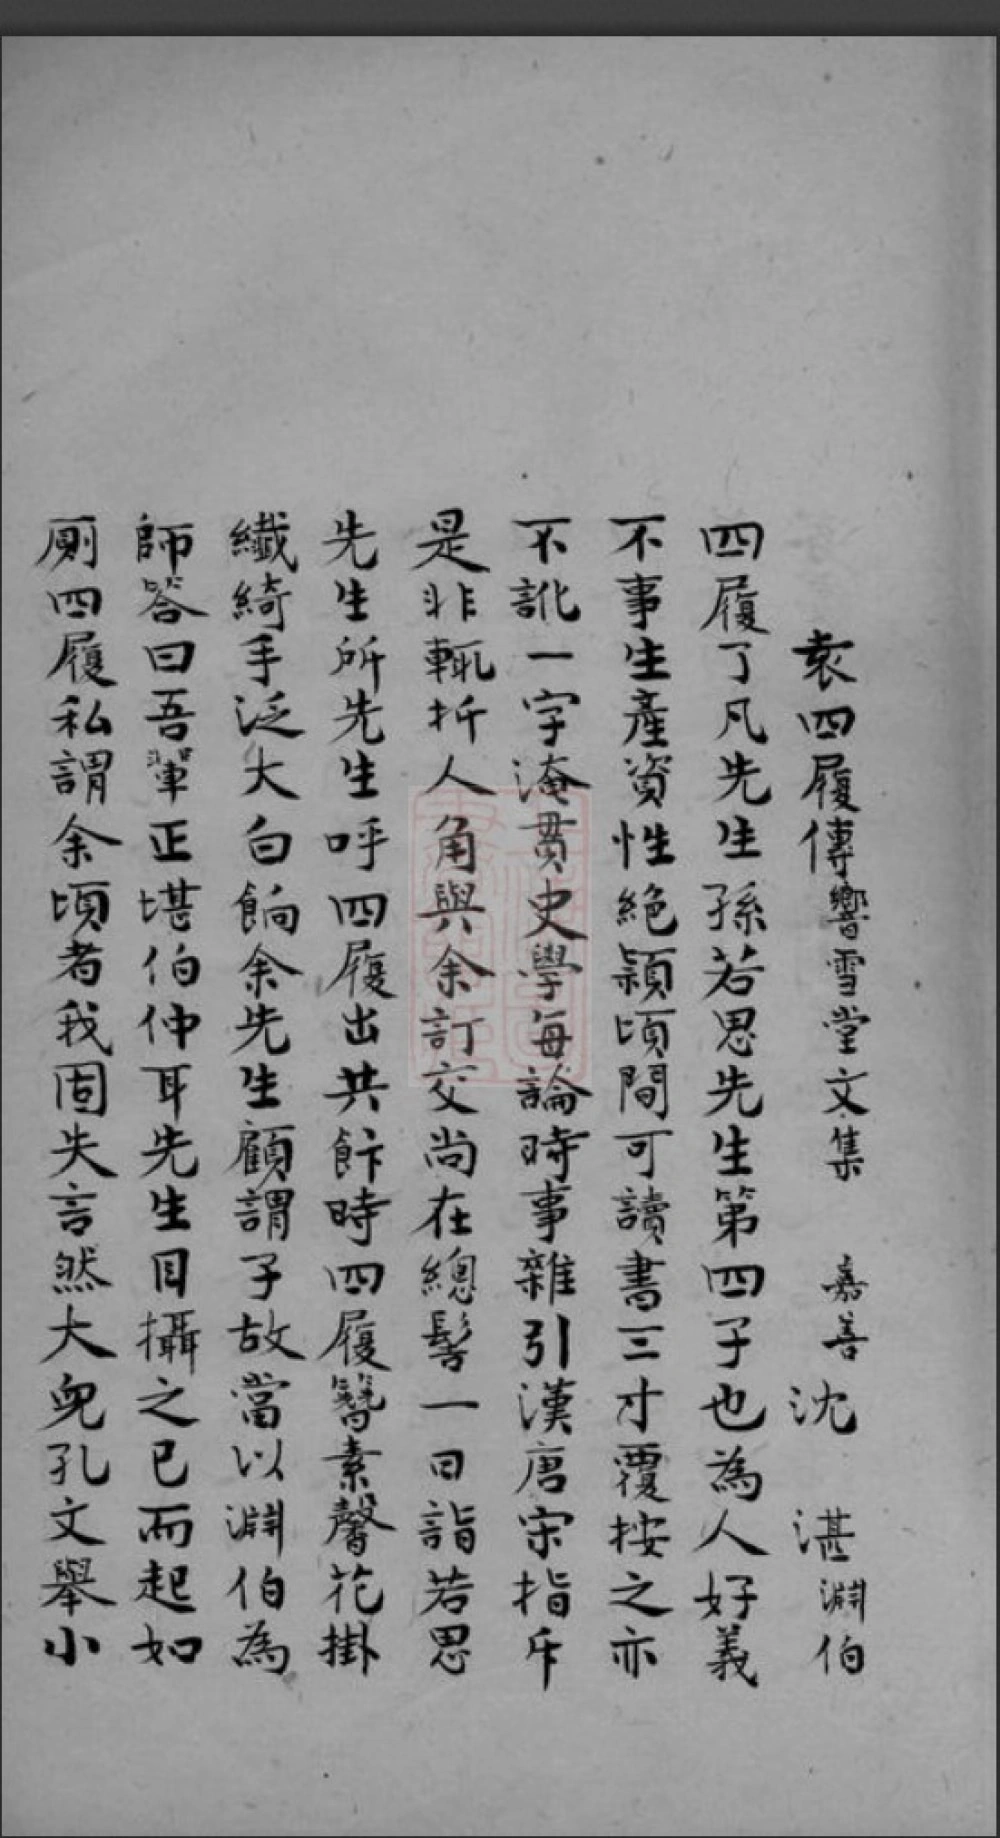 袁四履傳響雪堂文集 嘉善 沈 湛淵伯
四履了凡先生孫若思先生第四子也為人好義
不事生產資性絕穎頃間可讀書三寸覆按之亦
不訛一字淹貫史學每論時事雜引漢唐宋指斥
是非輒折人角與余訂交尚在總髻一日詣若思
先生所先生呼四履出共飰時四履簪素馨花掛
纖綺手泛大白餉余先生顧謂子故當以淵伯為
師答曰吾輩正堪伯仲耳先生目攝之已而起如
厠四履私謂余頃者我固失言然大兒孔文舉小